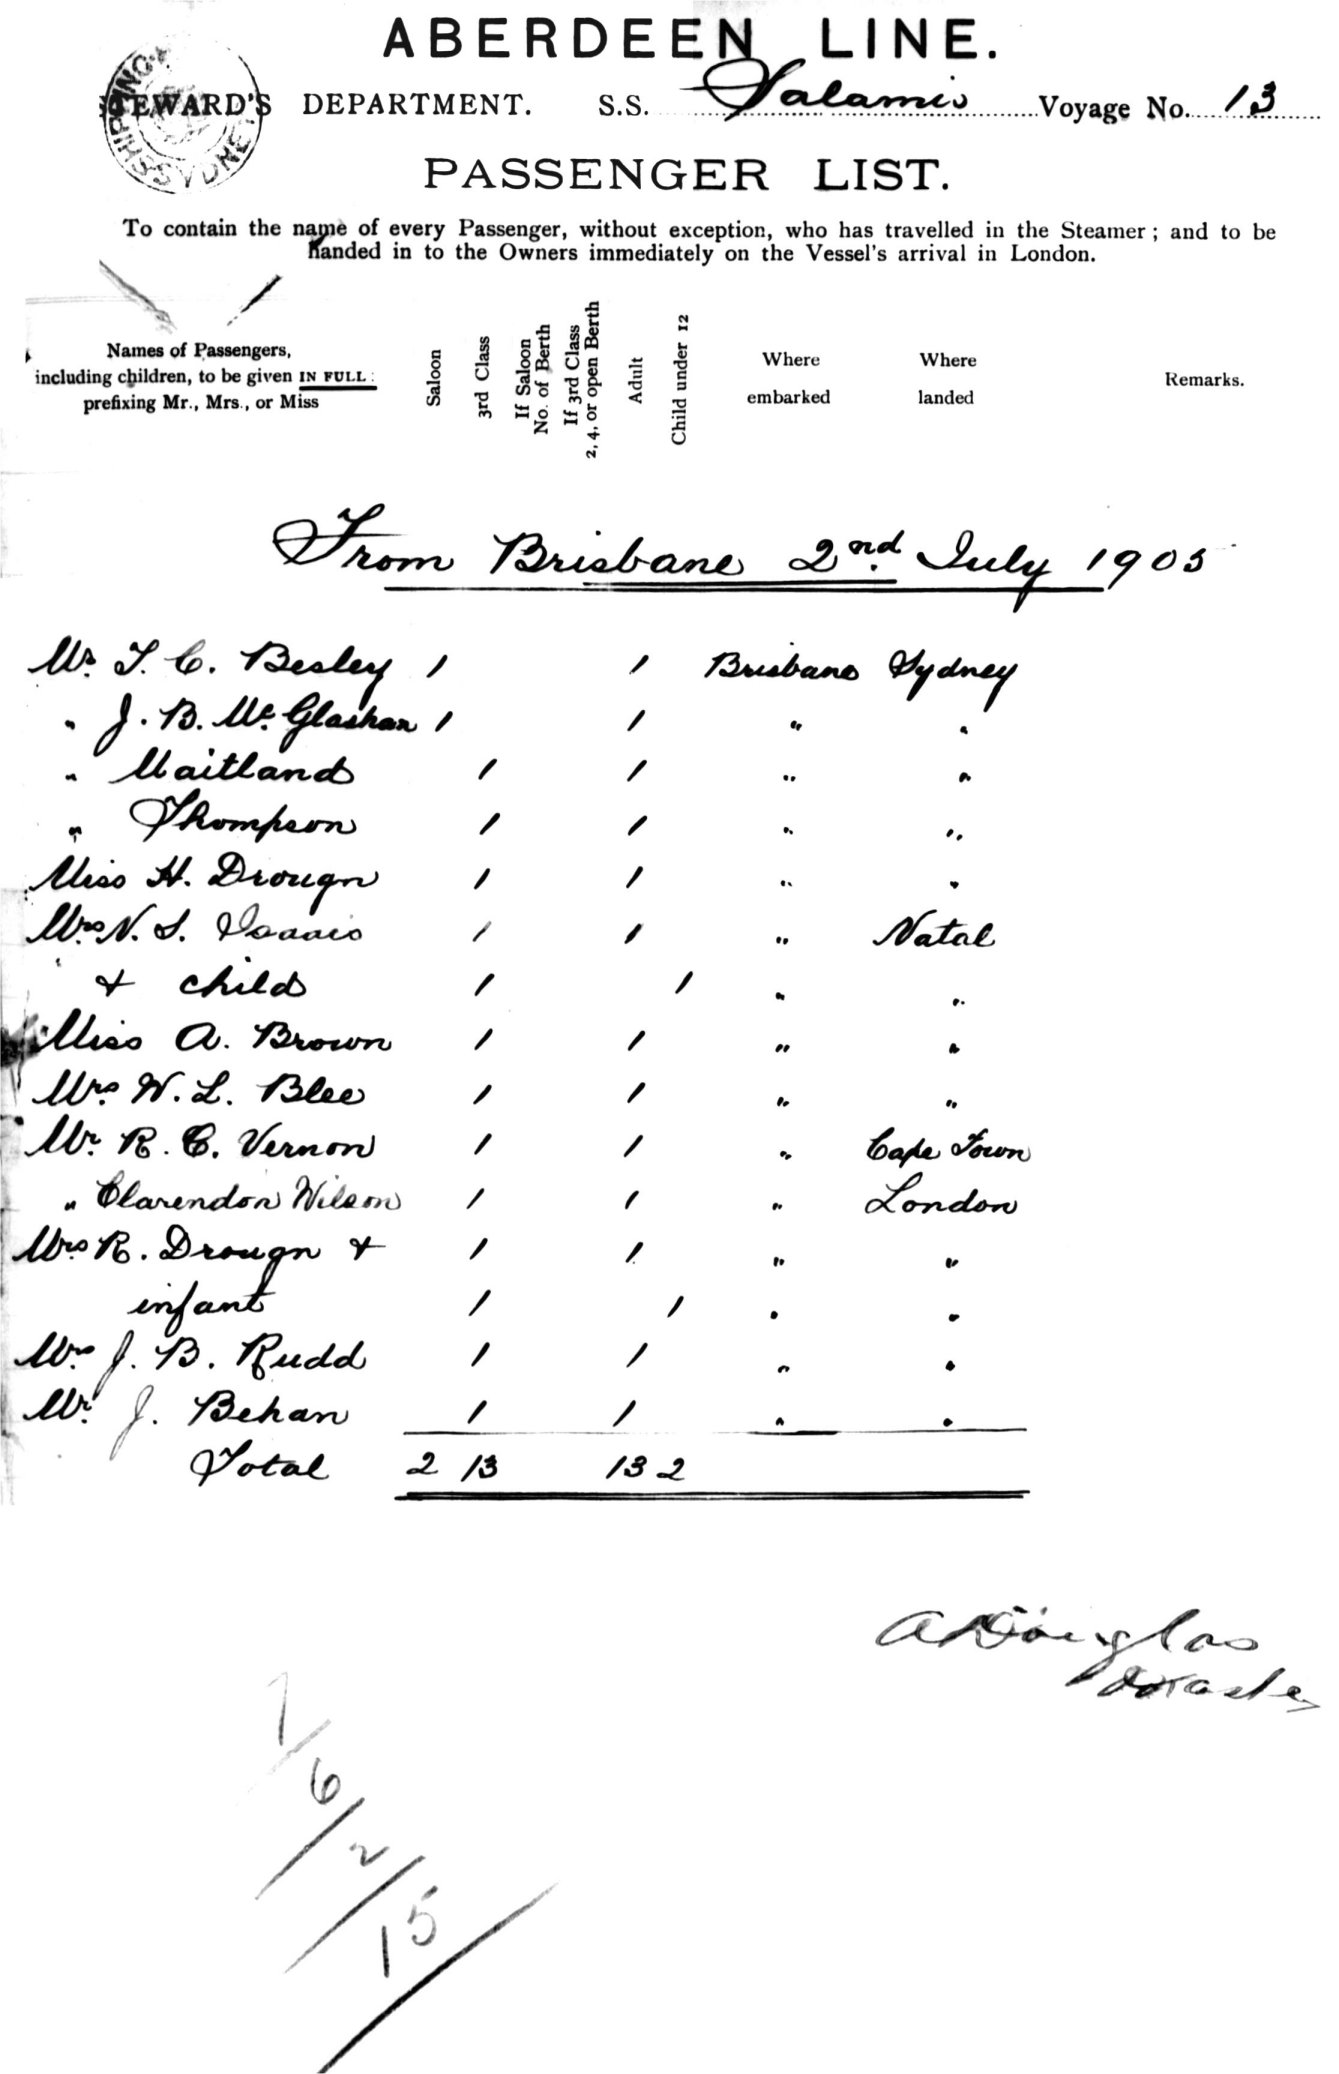 ABERDEEN LINE.
STEWARD'S DEPARTMENT. S.S. Salamis Voyage No. 13
SHIPPING SYDNEY
PASSENGER LIST.
To contain the name of every Passenger, without exception, who has travelled in the Steamer; and to be
handed in to the Owners immediately on the Vessel's arrival in London.
Names of Passengers,
including children, to be given IN FULL:
prefixing Mr., Mrs., or Miss
Saloon
3rd Class
If Saloon
No. of Berth
If 3rd Class
2, 4, or open Berth
Adult
Child under 12
Where
embarked
Where
landed
Remarks.
From Brisbane 2nd. July 1903
Mr. T. C. Besley 1 1 Brisbane Sydney
" J. B. McGlashan 1 1 " "
" Maitland 1 1 " "
" Thompson 1 1 " "
Miss H. Drougn 1 1 " "
Mrs N. S. Isaacs 1 1 " Natal
& child 1 1 " "
Miss A. Brown 1 1 " "
Mrs. W. L. Blee 1 1 " "
Mr. R. C. Vernon 1 1 " Cape Town
" Clarendon Wilson 1 1 " London
Mrs R. Drougn & 1 1 " "
infant 1 1 " "
Mrs J. B. Rudd 1 1 " "
Mr. J. Behan 1 1 " "
Total 2 13 13 2
A Douglas
Master
7/6/2/15